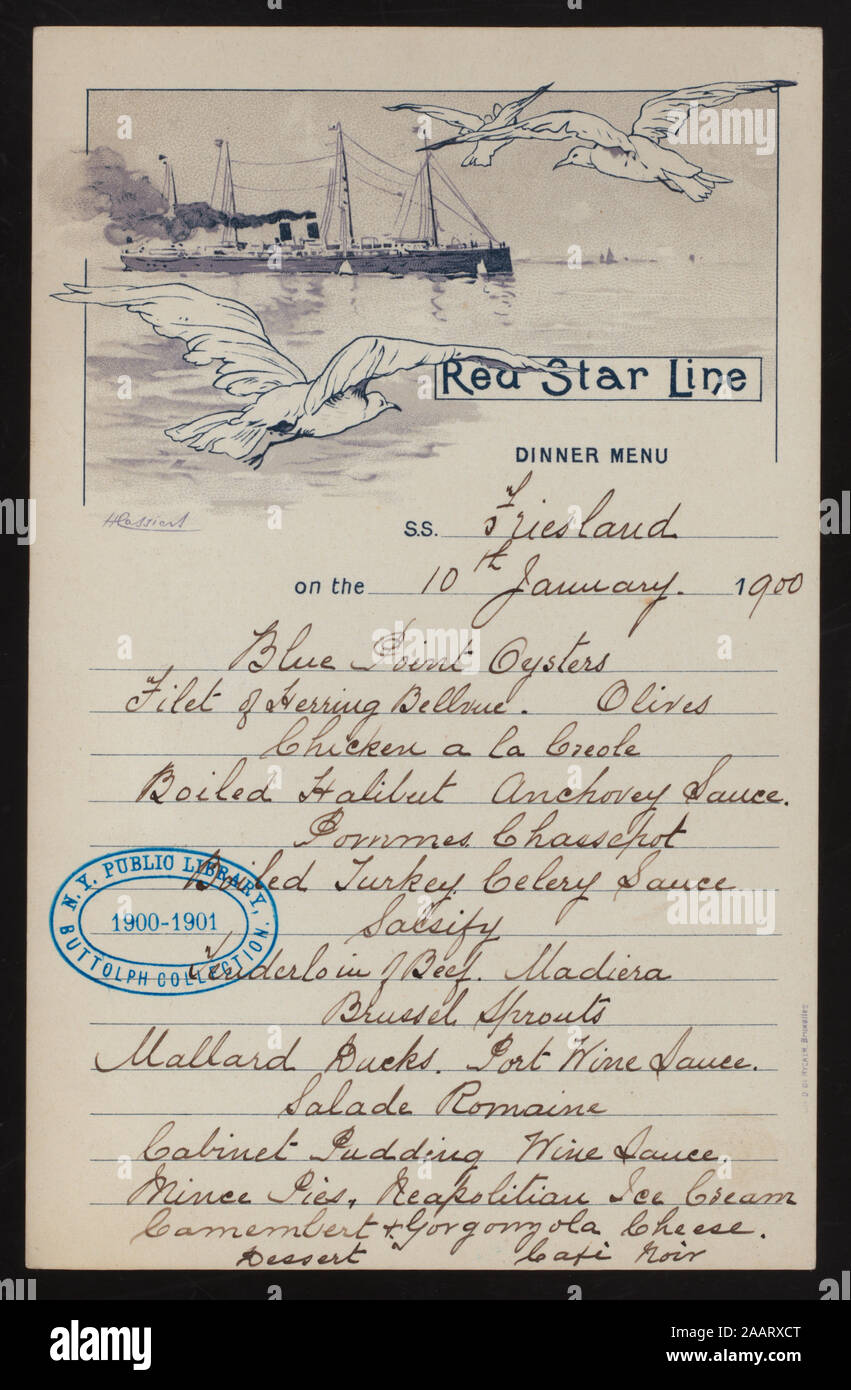 Red Star Line
DINNER MENU
HCassiers
S.S. Friesland
on the 10th January. 1900
Blue Point Oysters
Filet of Herring Bellvue. Olives
Chicken a la Creole
Boiled Halibut Anchovey Sauce.
Pommes Chassepot
Boiled Turkey Celery Sauce
Salsify
Tenderloin of Beef. Madiera
Brussel Sprouts
Mallard Ducks. Port Wine Sauce.
Salade Romaine
Cabinet Pudding Wine Sauce.
Mince Pies, Neapolitian Ice Cream
Camembert & Gorgonzola Cheese.
Dessert Café Noir
N.Y. PUBLIC LIBRARY,
1900-1901
BUTTOLPH COLLECTION
alamy
Image ID: 2AARXCT
www.alamy.com